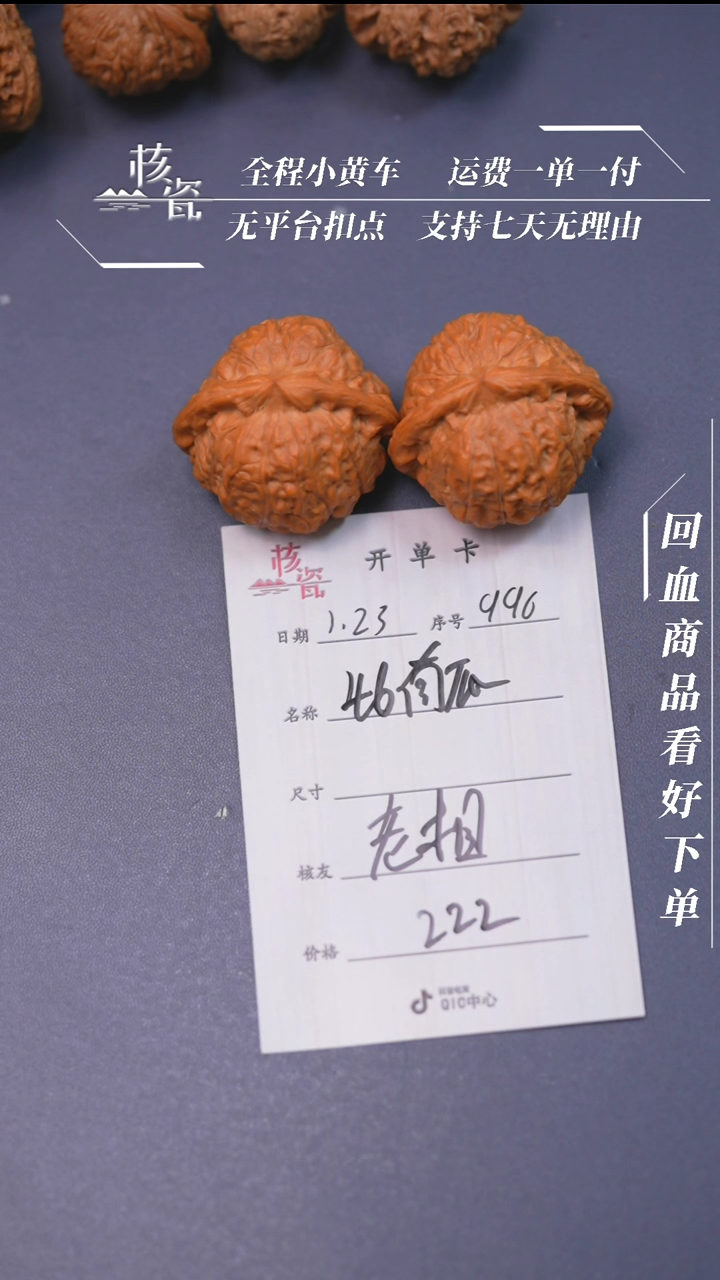 核瓷
全程小黄车 运费一单一付
无平台扣点 支持七天无理由
回血商品看好下单
核瓷 开单卡
日期 1.23 序号 996
名称 46
尺寸
核友 老相
价格 222
抖音电商
QIC中心